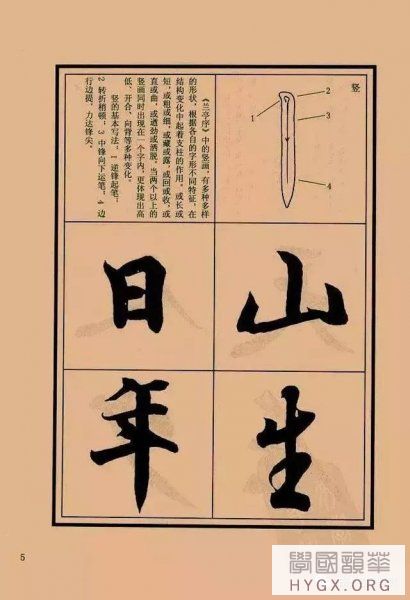 竖
1
2
3
4
《兰亭序》中的竖画，有多种多样
的形状，根据各自的字形不同特征，在
结构变化中起着支柱的作用。或长或
短，或粗或细，或藏或露，或回或收，或
直或曲，或遒劲或洒脱。当两个以上的
竖画同时出现在一个字内，更体现出高
低、开合、向背等多种变化。
竖的基本写法：1 逆锋起笔；
2 转折稍顿；3 中锋向下运笔；4 边
行边提，力达锋尖。
山
日
生
年
5
學國韻華
HYGX.ORG